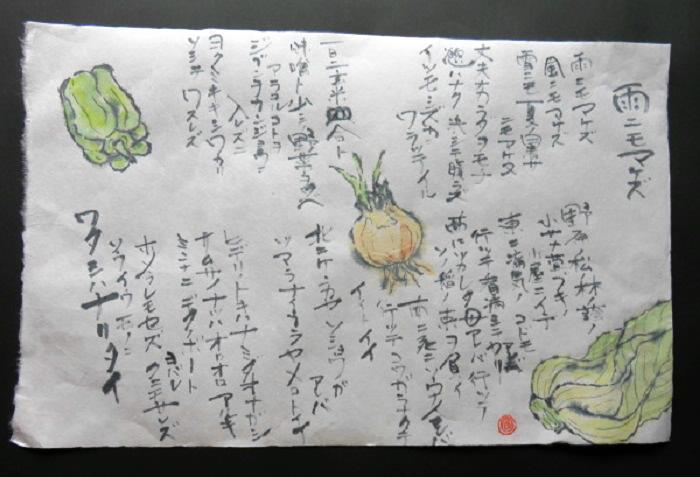 雨ニモマケズ
雨ニモマケズ
風ニモマケズ
雪ニモ夏ノ暑サ
ニモマケヌ
丈夫ナカラダヲモチ
慾ハナク 決シテ瞋ラズ
イツモシズカニ
ワラッテイル
一日ニ玄米四合ト
味噌ト少シノ野菜ヲタベ
アラユルコトヲ
ジブンヲカンジョウニ
入レズニ
ヨクミキキシワカリ
ソシテワスレズ
野原ノ松林ノ蔭ノ
小サナ萱ブキノ
小屋ニイテ
東ニ病気ノコドモ
アレバ
行ッテ看病シテヤリ
西ニツカレタ母アレバ行ッテ
ソノ稲ノ束ヲ負イ
南ニ死ニソウナ人アレバ
行ッテコワガラナクテモ
イイトイイ
北ニケンカヤソショウガ
アレバ
ツマラナイカラヤメロトイイ
ヒデリノトキハナミダヲナガシ
サムサノナツハオロオロアルキ
ミンナニデクノボート
ヨバレ
ホメラレモセズ クニモサレズ
ソウイウモノニ
ワタシハナリタイ